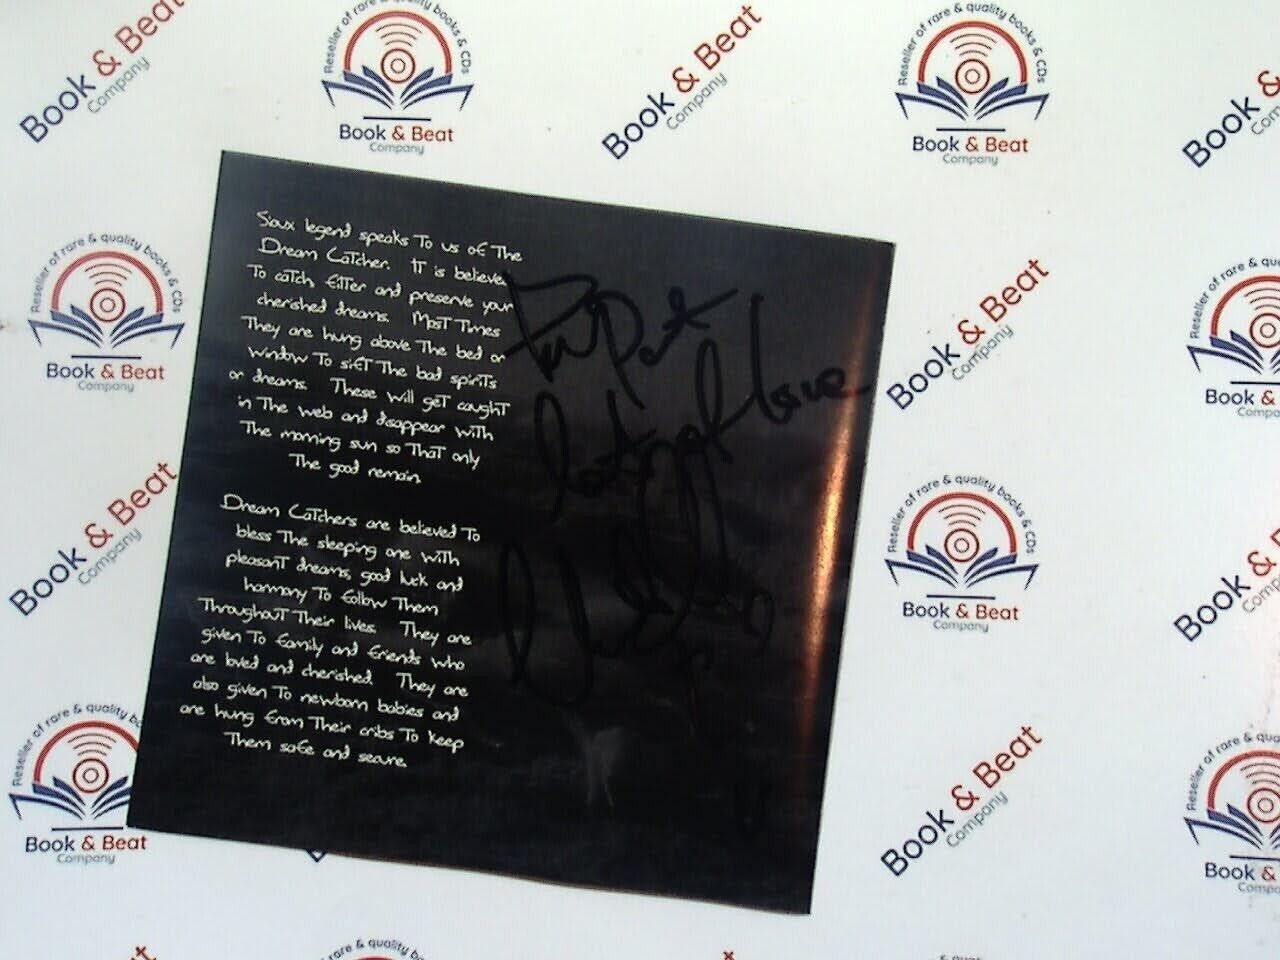 Sioux legend speaks To us of The
Dream Catcher. IT is believed
To catch filTer and preserve your
cherished dreams. MosT Times
They are hung above The bed or
window To sifT The bad spiriTs
or dreams. These will geT caughT
in The web and disappear wiTh
The morning sun so ThaT only
The good remain.
Dream CaTchers are believed To
bless The sleeping one wiTh
pleasanT dreams, good luck and
harmony To follow Them
ThroughouT Their lives. They are
given To family and friends who
are loved and cherished. They are
also given To newborn babies and
are hung from Their cribs To keep
Them safe and secure.
lots of love
Book & Beat
Company
Reseller of rare & quality books & CDs
Book & Beat
Company
Book & Beat
Company
Reseller of rare & quality books & CDs
Book & Beat
Company
Book &
Reseller of rare & quality books & CDs
Book & Beat
Company
Book & Beat
Company
Book &
Book & Beat
Company
Reseller of rare & quality books & CDs
Book & Beat
Company
Book &
Reseller of rare & quality
Book & Beat
Company
Book & Beat
Company
Book &